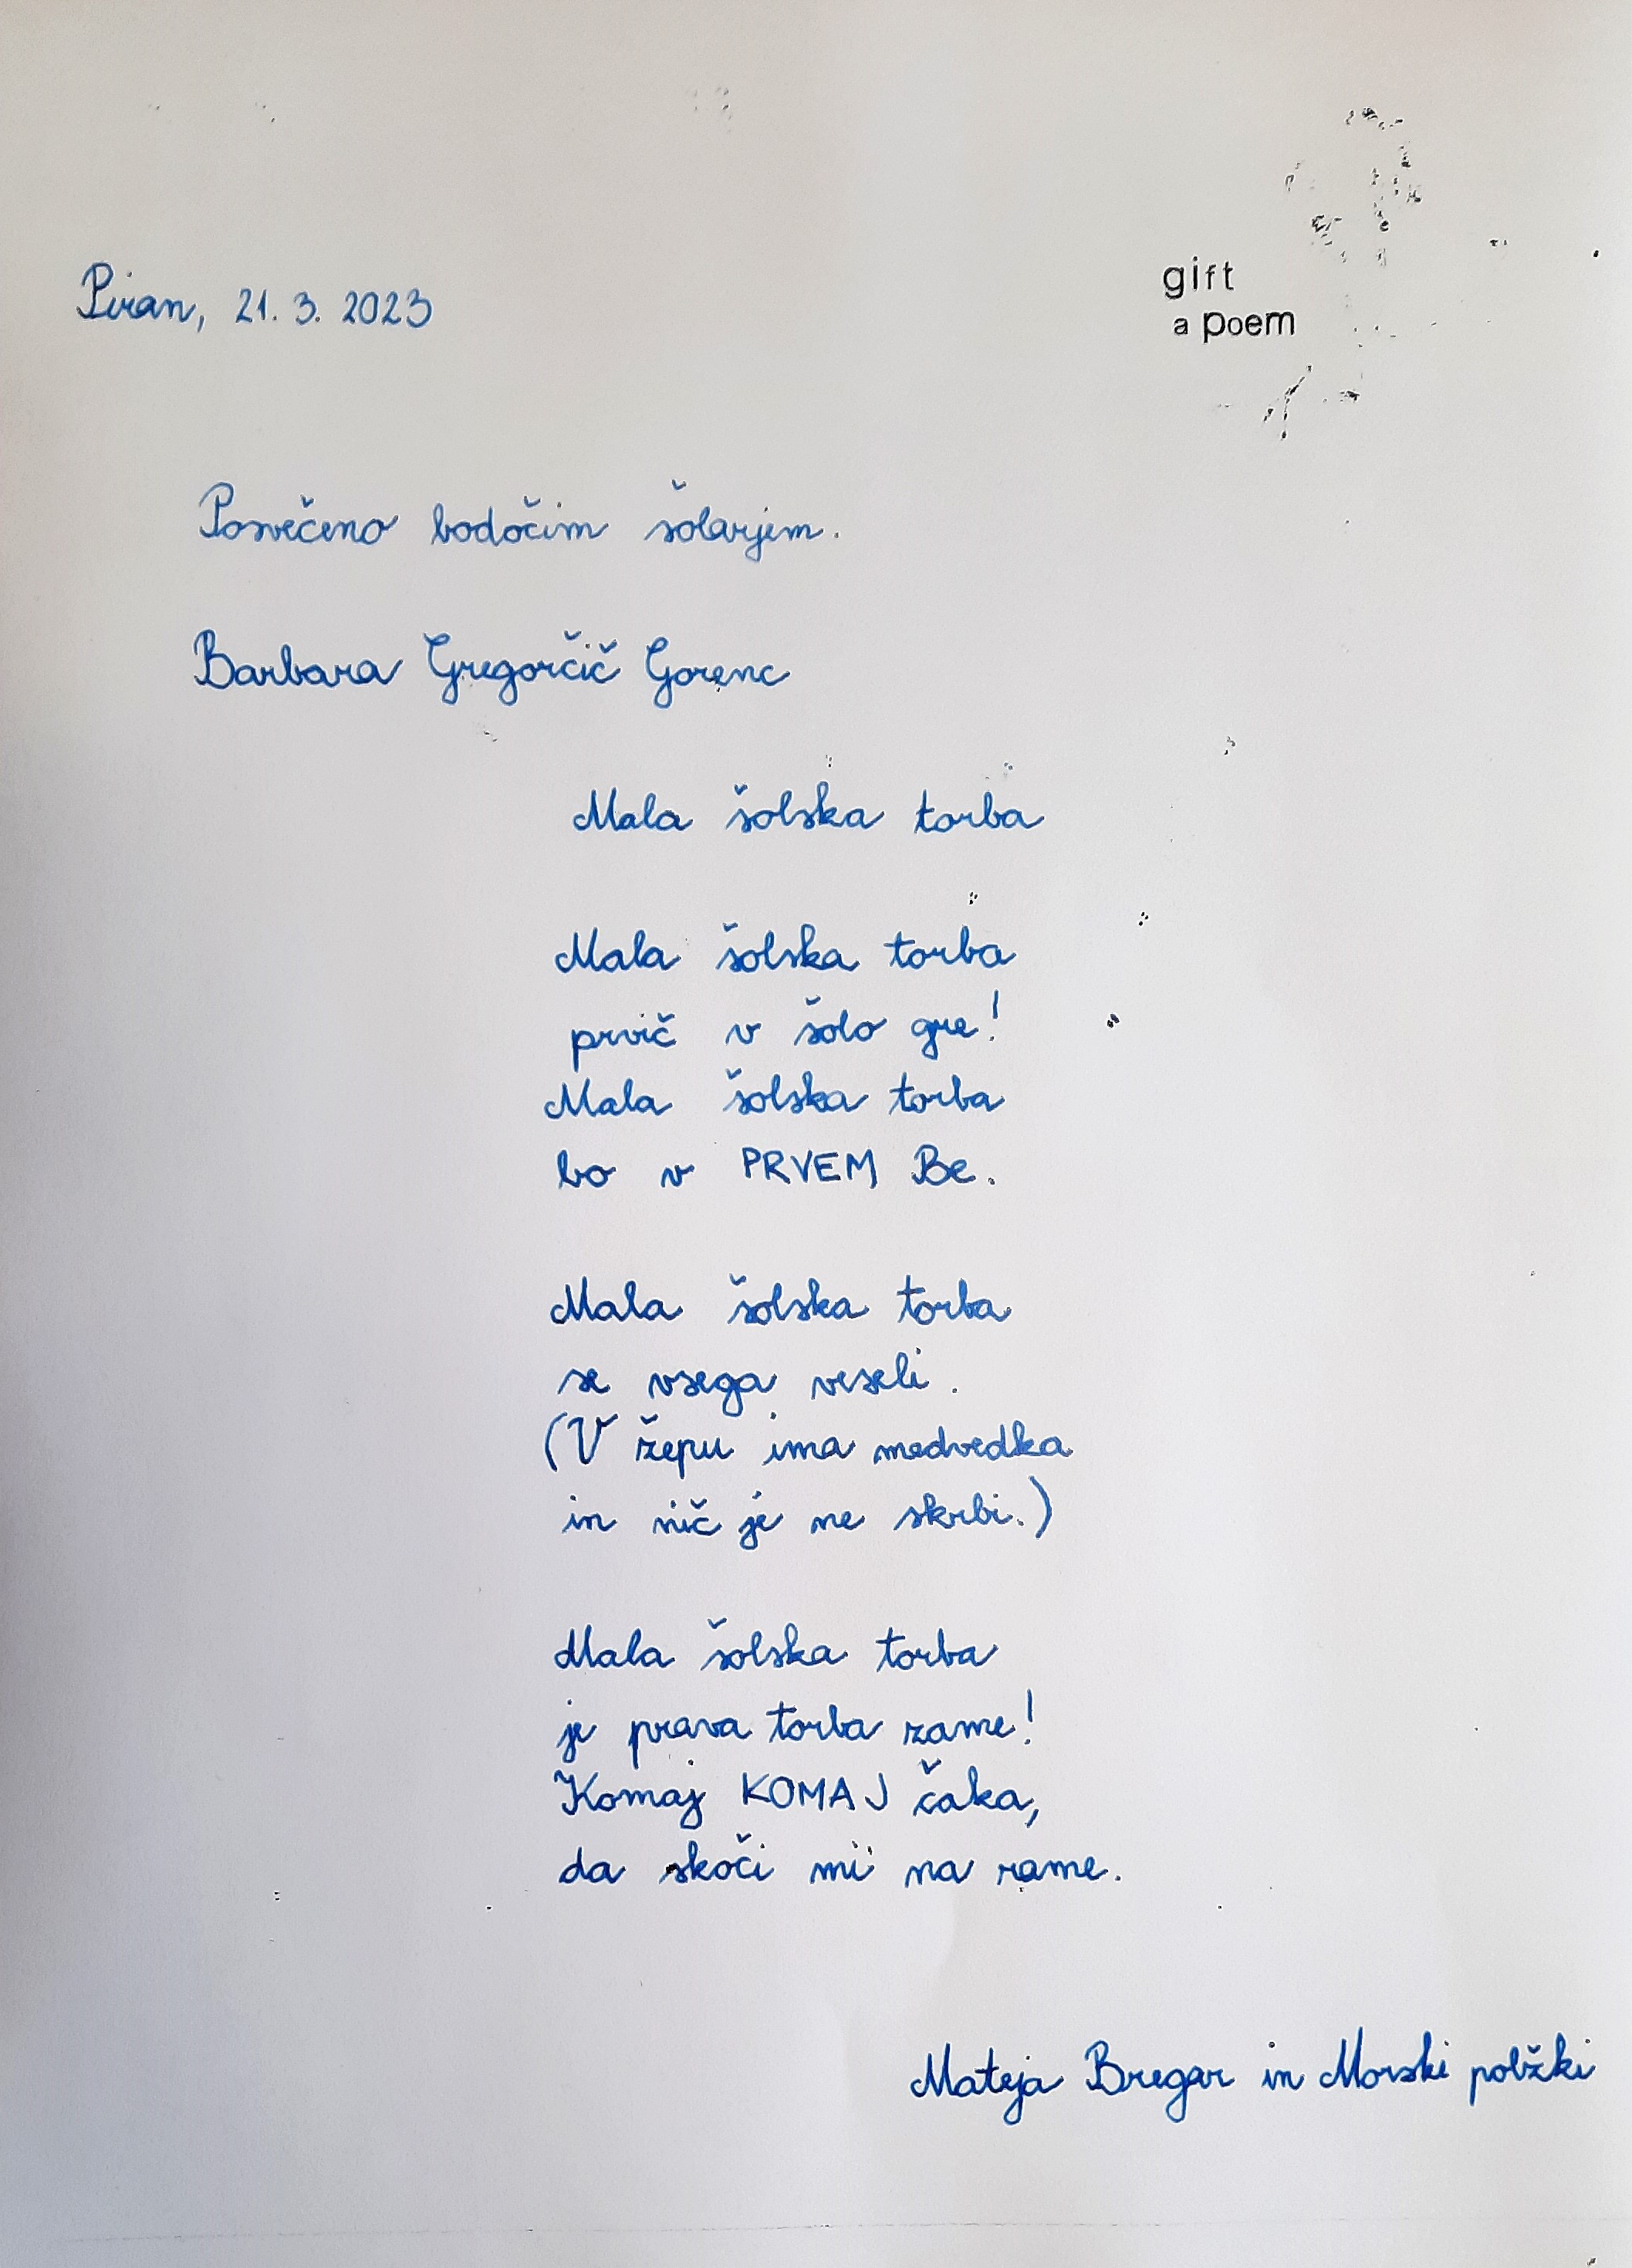 Piran, 21. 3. 2023
gift
a poem
Posvečeno bodočim šolarjem.
Barbara Gregorčič Gorenc
Mala šolska torba
Mala šolska torba
prvič v šolo gre!
Mala šolska torba
bo v PRVEM Be.
Mala šolska torba
se vsega veseli.
(V žepu ima medvedka
in nič je ne skrbi.)
Mala šolska torba
je prava torba zame!
Komaj KOMAJ čaka,
da skoči mi na rame.
Mateja Bregar in Morski polžki